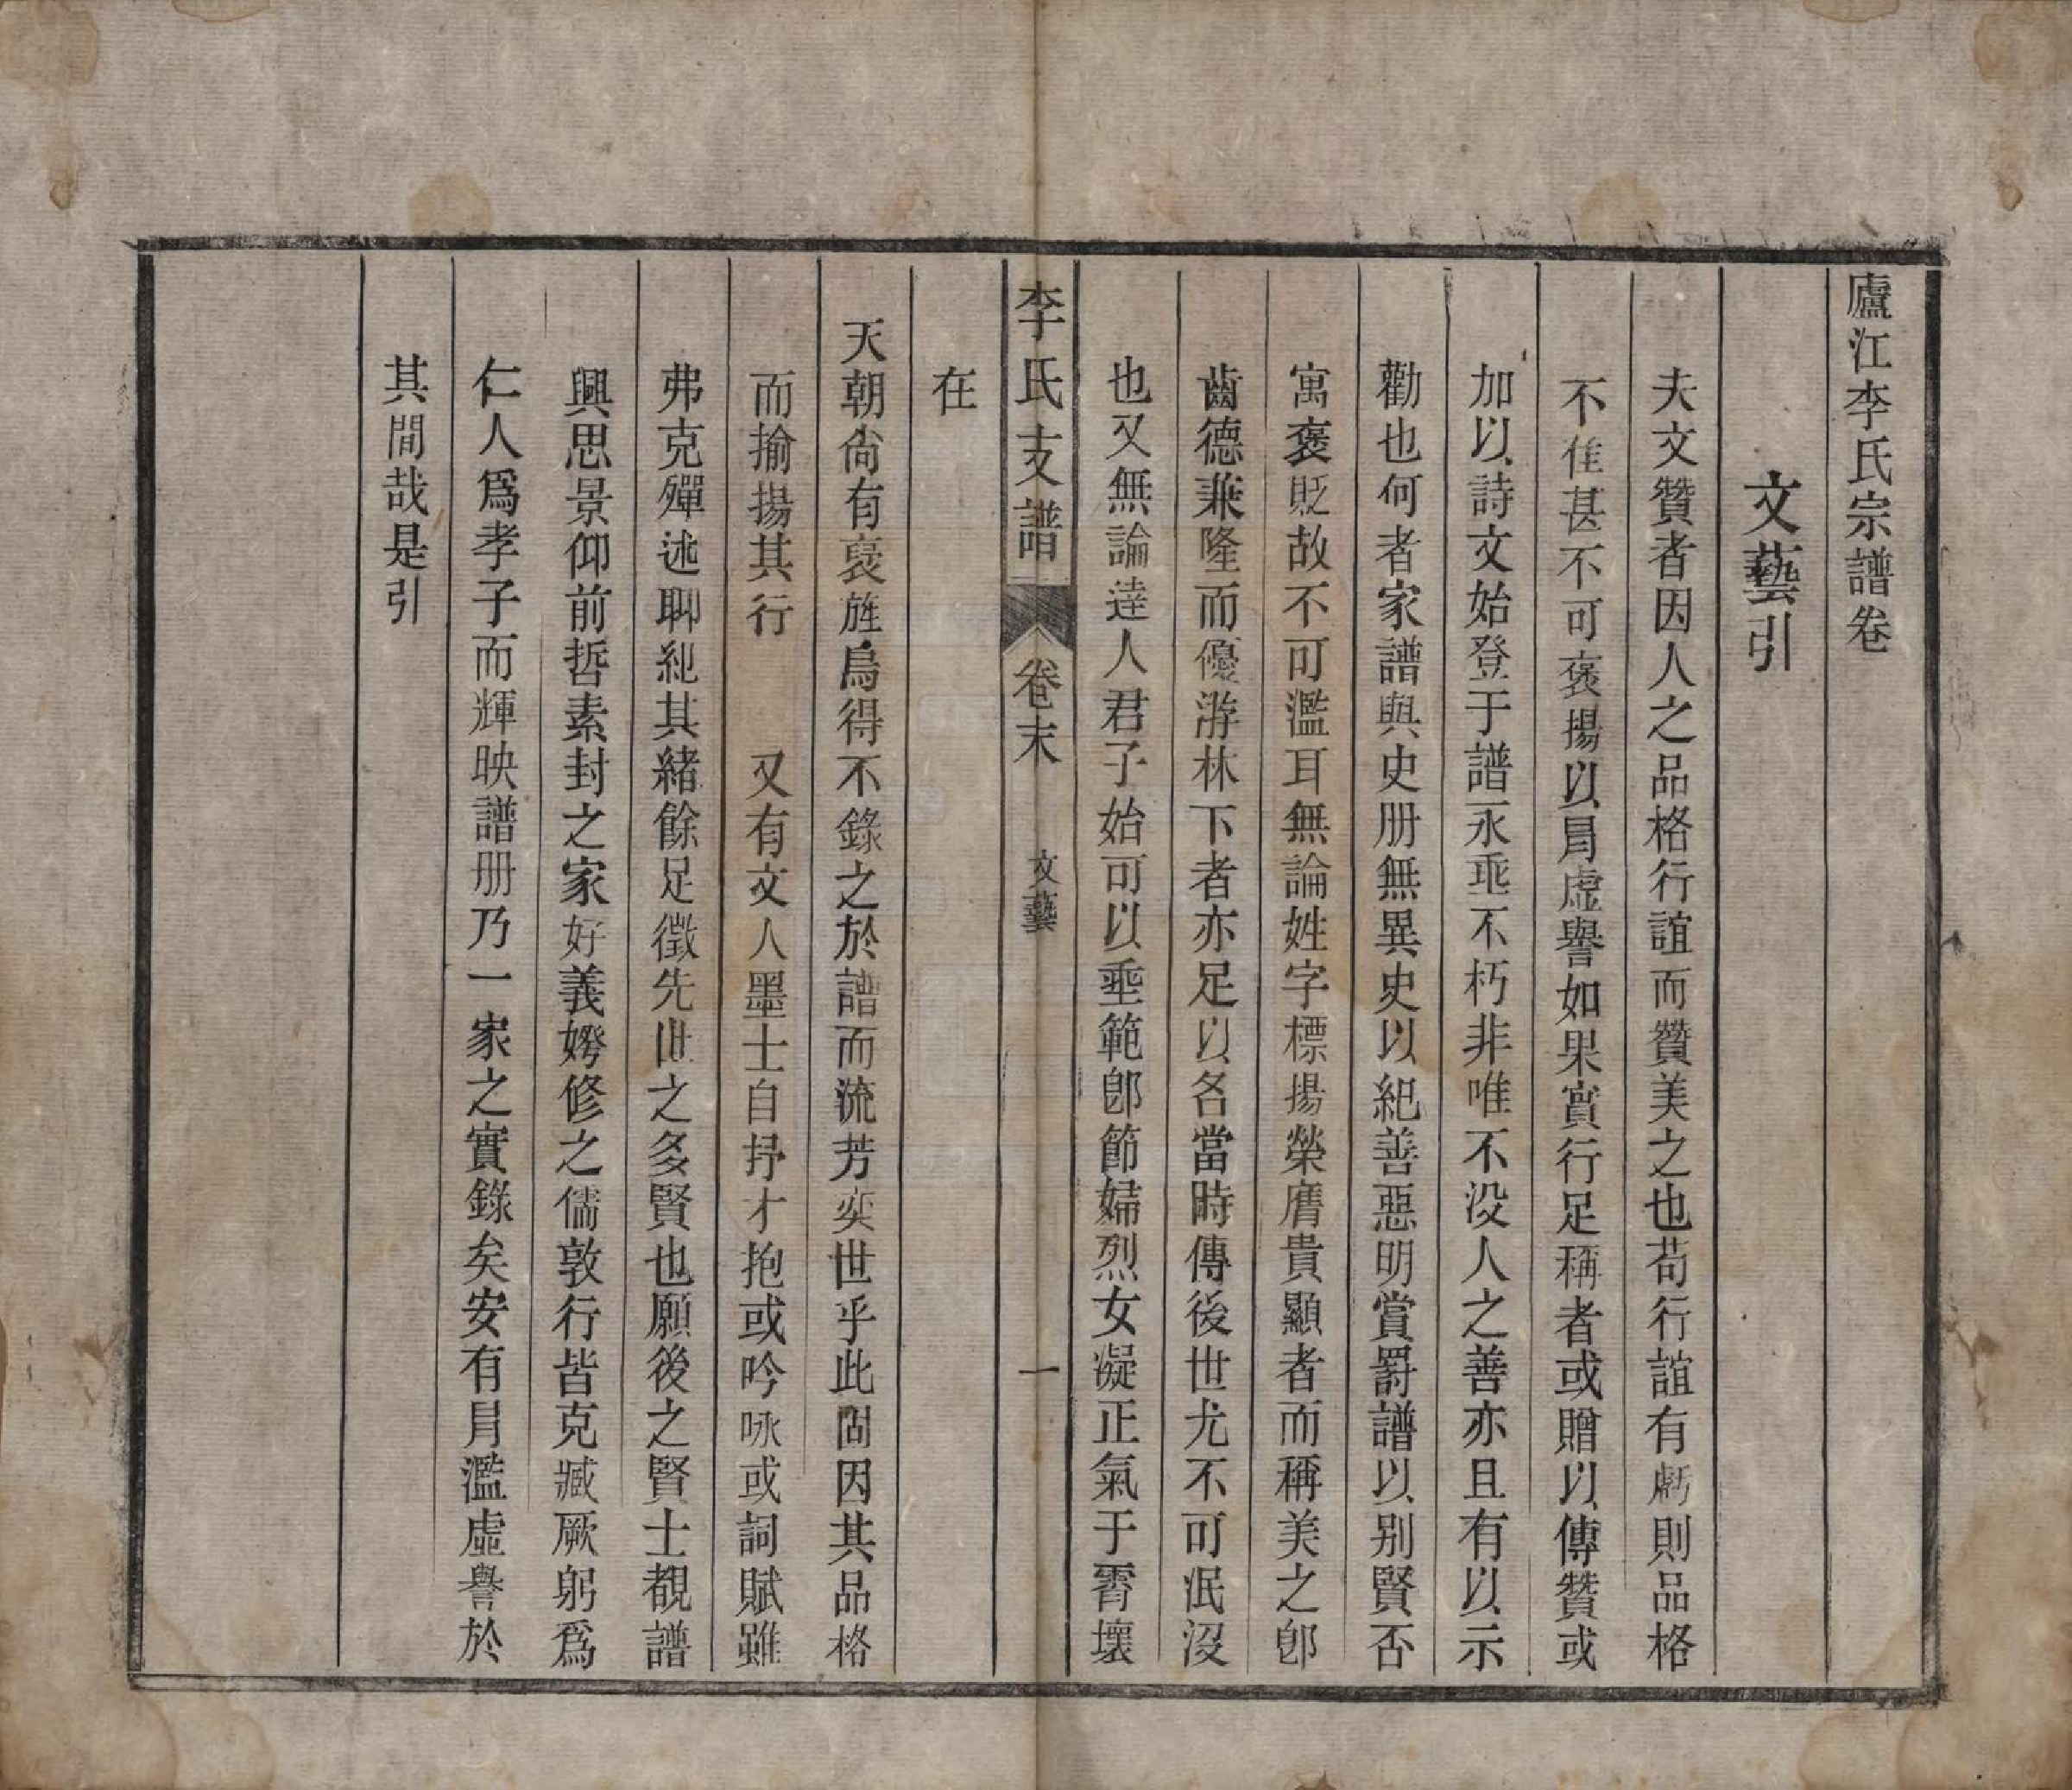 廬江李氏宗譜卷
文藝引
夫文贊者因人之品格行誼而贊美之也苟行誼有虧則品格
不佳甚不可褒揚以冐虛譽如果實行足稱者或贈以傳贊或
加以詩文始登于譜永垂不朽非唯不没人之善亦且有以示
勸也何者家譜與史册無異史以紀善惡明賞罸譜以别賢否
寓褒貶故不可濫耳無論姓字標揚榮膺貴顯者而稱美之卽
齒德兼隆而優游林下者亦足以名當時傳後世尤不可泯沒
也又無論達人君子始可以垂範卽節婦烈女凝正氣于霄壤
李氏支譜 卷末 文藝 一
在
天朝尙有褒旌烏得不錄之於譜而流芳奕世乎此固因其品格
而揄揚其行 又有文人墨士自抒才抱或吟咏或詞賦雖
弗克殫述聊紀其緒餘足徵先世之多賢也願後之賢士覩譜
興思景仰前哲素封之家好義媺修之儒敦行皆克臧厥躬爲
仁人爲孝子而輝映譜册乃一家之實錄矣安有冐濫虛譽於
其間哉是引